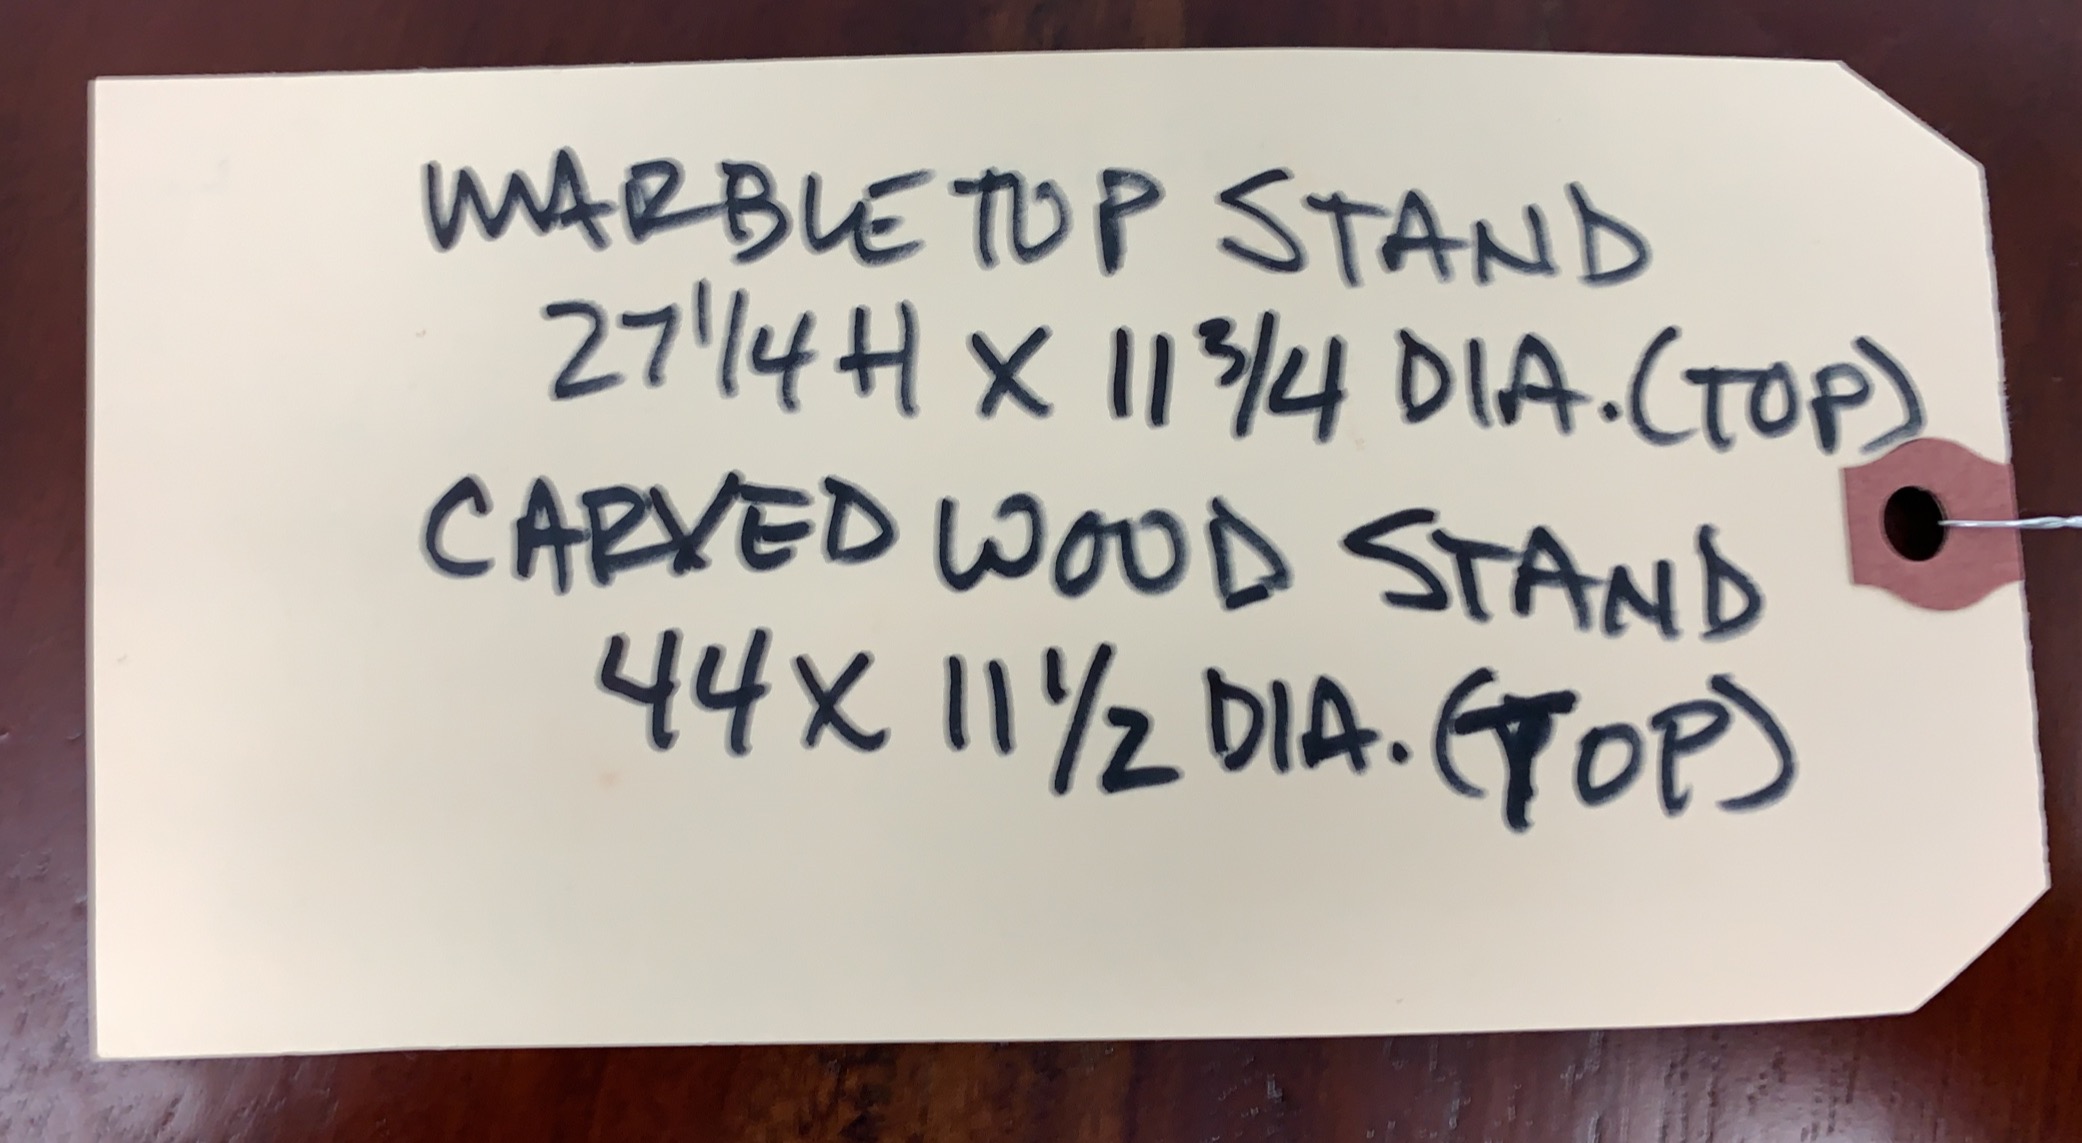 MARBLE TOP STAND
27 1/4 H X 11 3/4 DIA. (TOP)
CARVED WOOD STAND
44 X 11 1/2 DIA. (TOP)